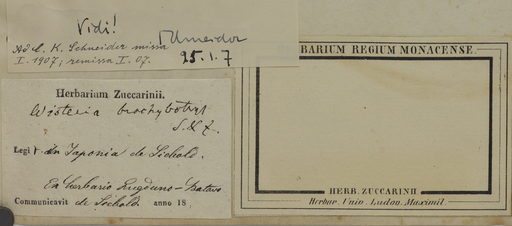 Vidi!
Ad C. K. Schneider missa
I. 1907; remissa I. 07.
Schneider
25.1.7
Herbarium Zuccarinii.
Wisteria brachybotrys
S. & Z.
Legit in Japonia de Siebold.
Ex herbario Lugduno-Batavo
Communicavit de Siebold. anno 18
HERBARIUM REGIUM MONACENSE.
HERB. ZUCCARINII
Herbar. Univ. Ludov. Maximil.